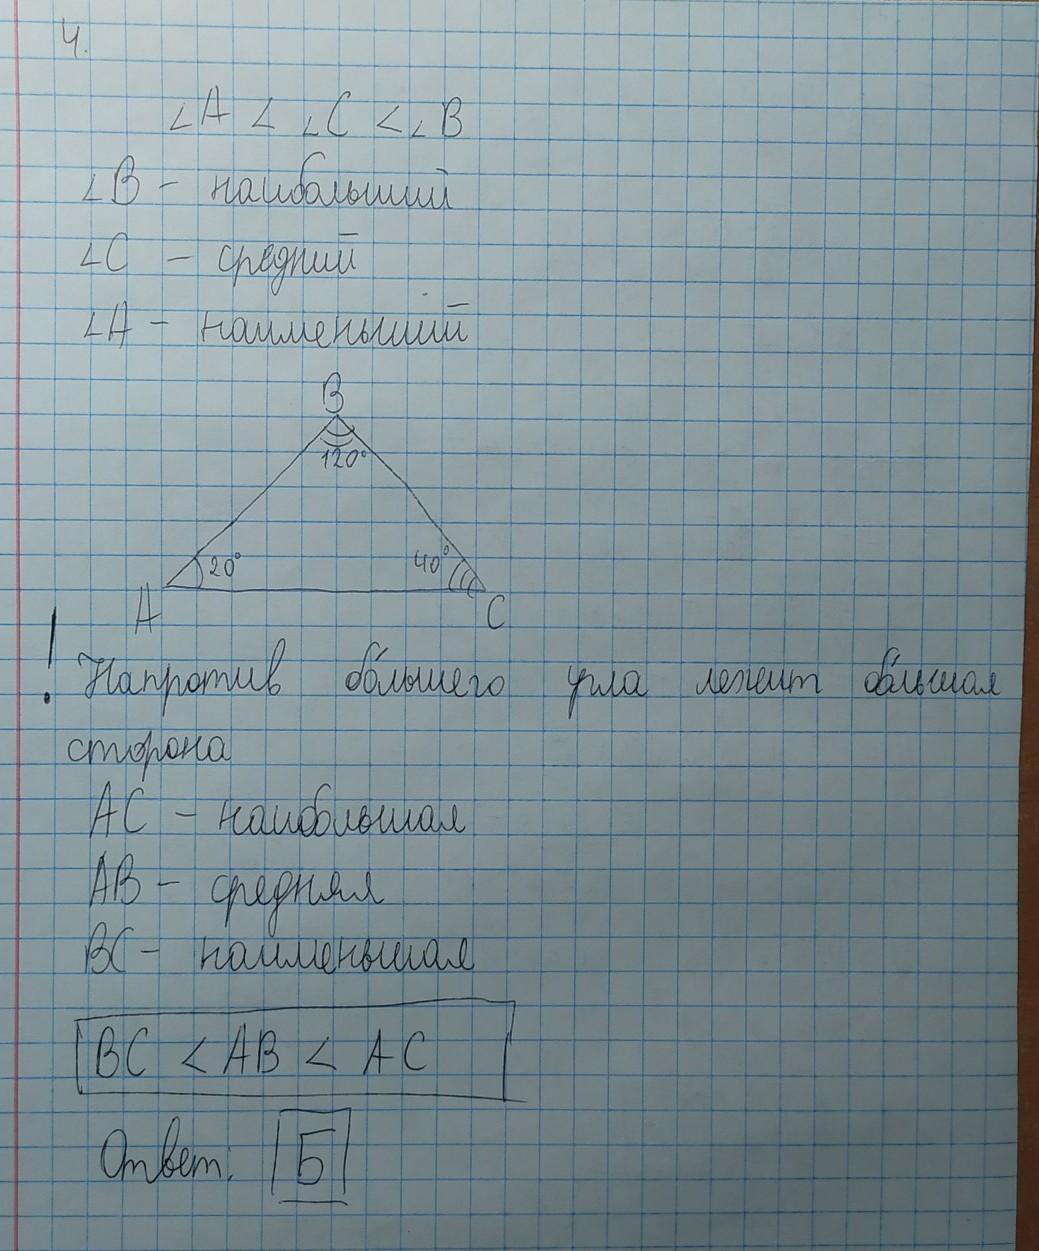 4.
∠A < ∠C < ∠B
∠B - наибольший
∠C - средний
∠A - наименьший
B
120°
20°
40°
A
C
! Напротив большего угла лежит большая
сторона
AC - наибольшая
AB - средняя
BC - наименьшая
BC < AB < AC
Ответ: Б